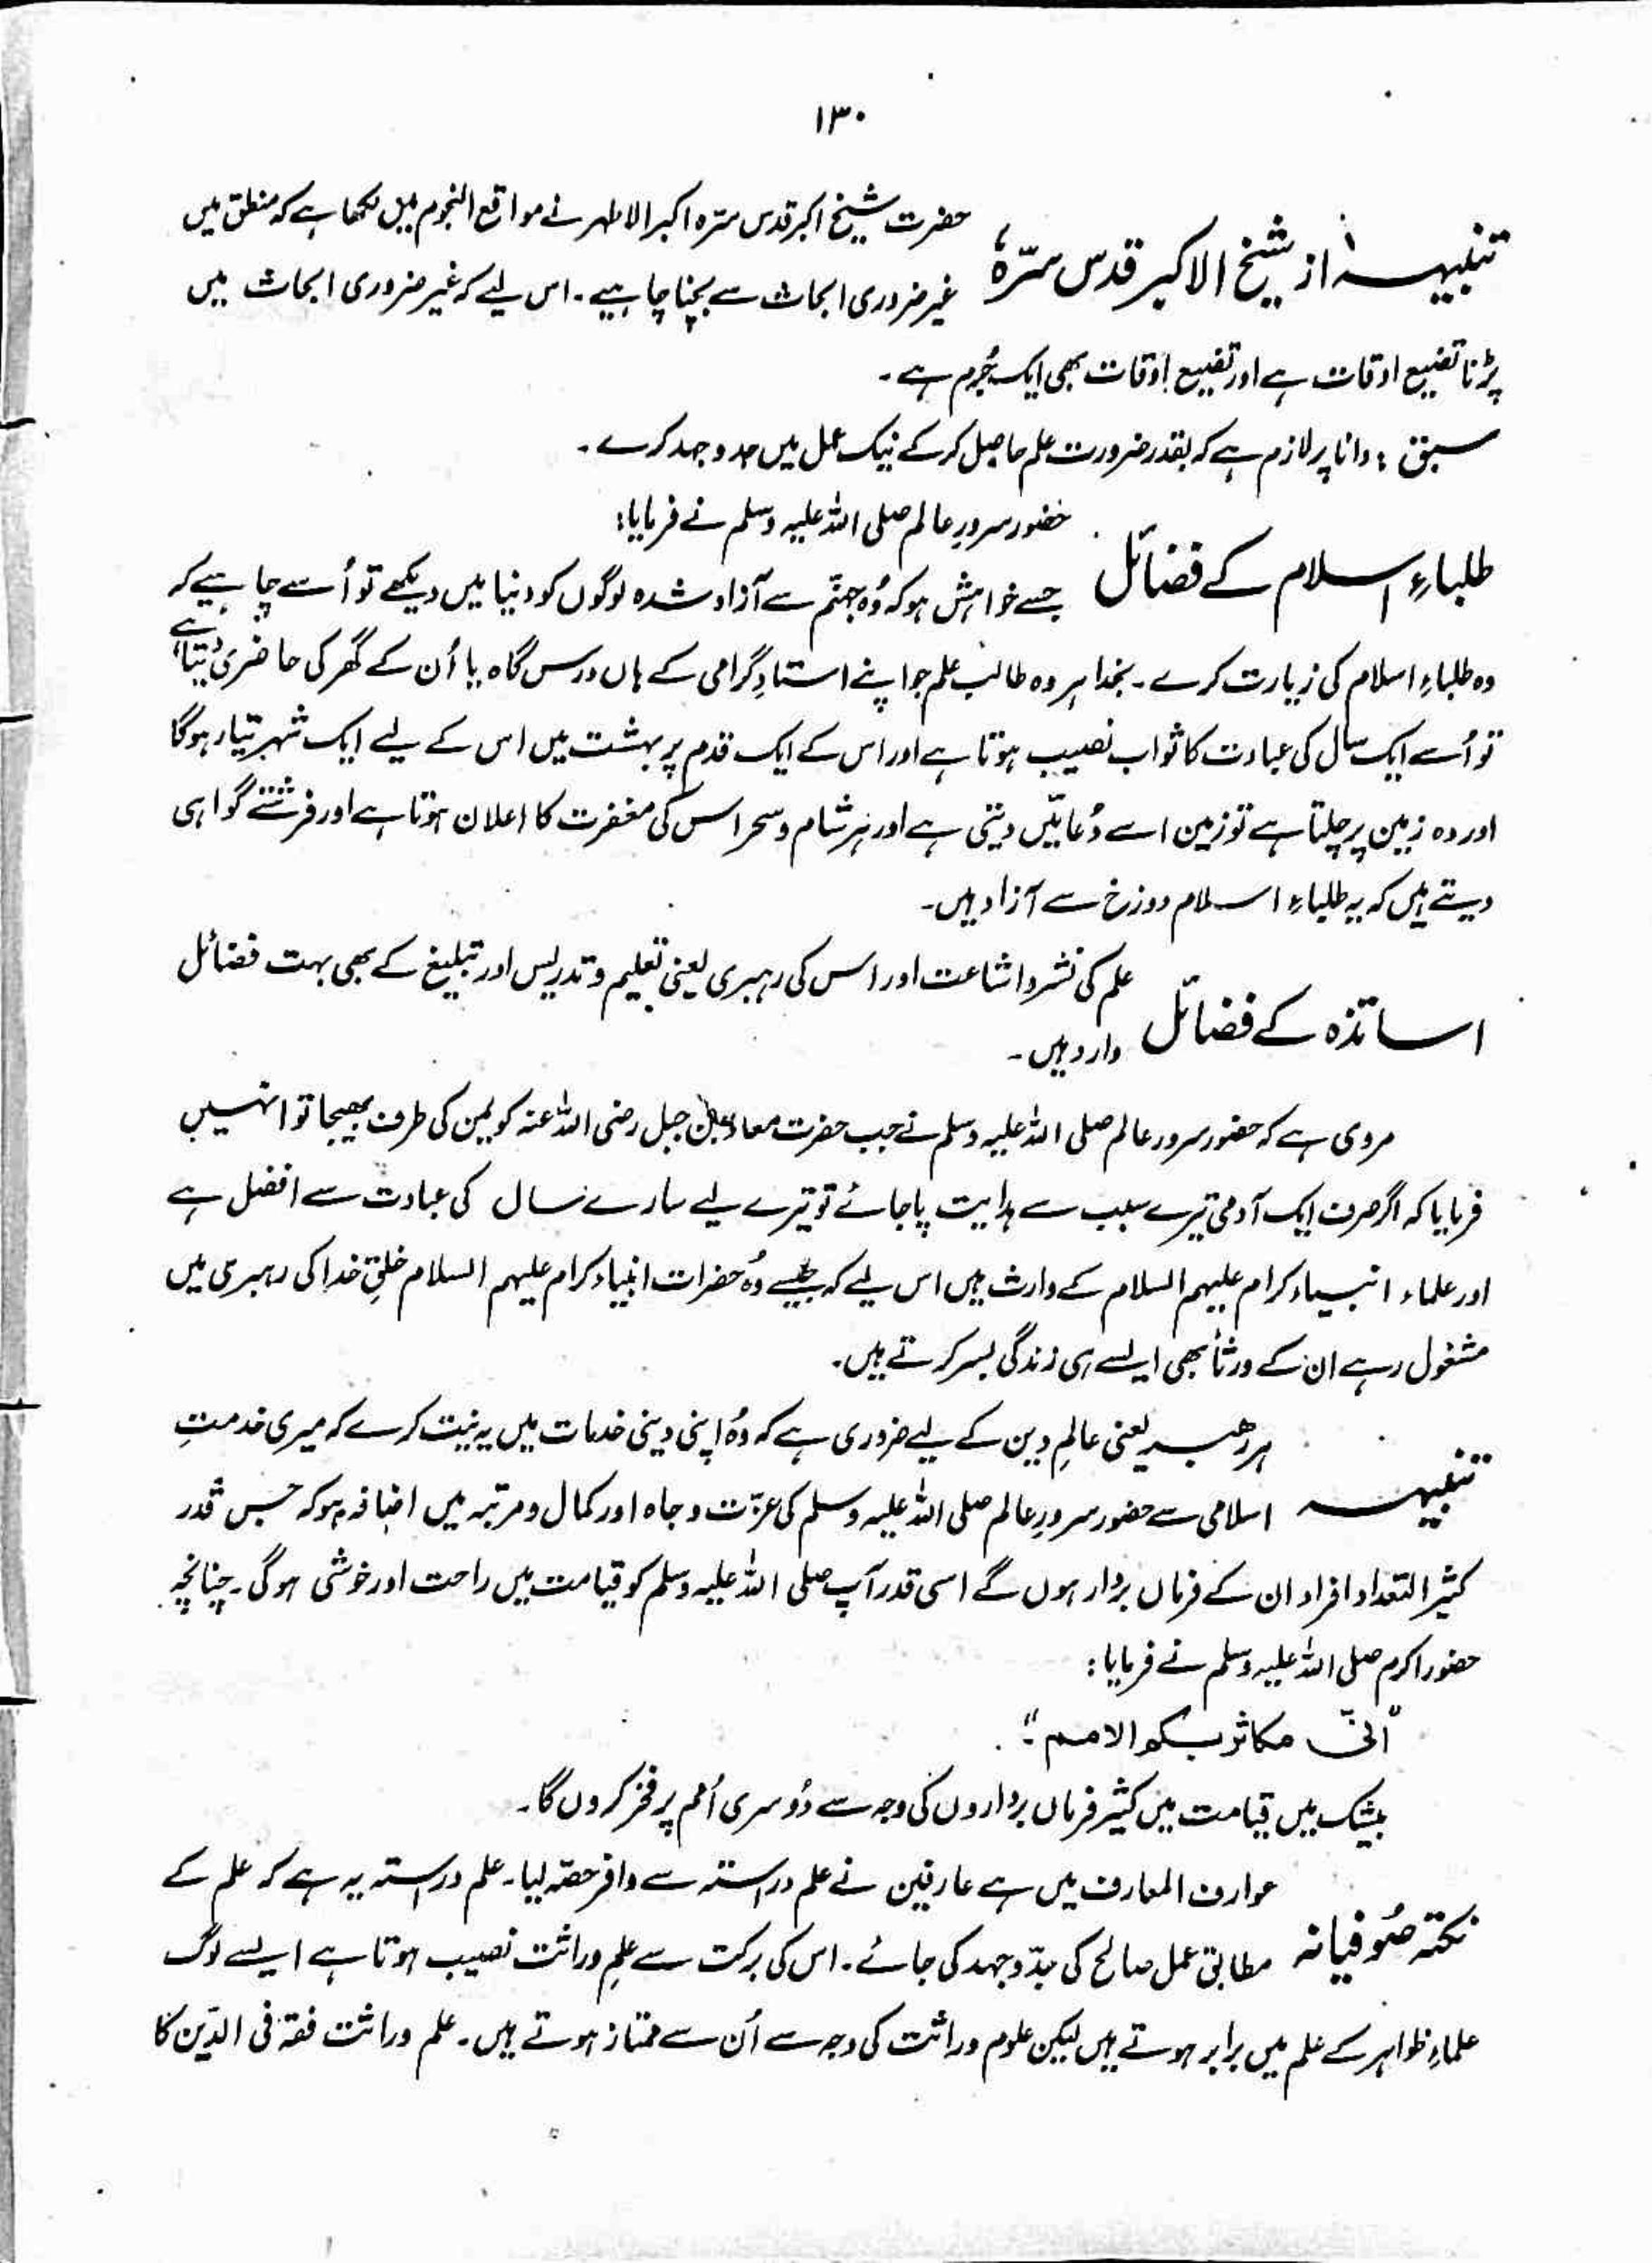 ۱۳۰
تنبیہ۱ از شیخ الاکبر قدس سرّہٗ
حضرت شیخ اکبر قدس سرّہ اکبر الاطہر نے مواقع النجوم میں لکھا ہے کہ منطق میں
غیر ضروری ابحاث سے بچنا چاہیے۔ اس لیے کہ غیر ضروری ابحاث میں
پڑنا تضیع اوقات ہے اور تضیع اوقات بھی ایک جُرم ہے۔
سبق : دانا پر لازم ہے کہ بقدر ضرورت علم حاصل کر کے نیک عمل میں جد و جہد کرے۔
طلباءِ اسلام کے فضائل
حضور سرورِ عالم صلی اللہ علیہ وسلم نے فرمایا:
جسے خواہش ہو کہ وُہ جہنّم سے آزاد شدہ لوگوں کو دنیا میں دیکھے تو اُسے چاہیے کہ
وہ طلباءِ اسلام کی زیارت کرے۔ بخدا ہر وہ طالب علم جو اپنے استادِ گرامی کے ہاں درس گاہ یا اُن کے گھر کی حاضری دیتا ہے
تو اُسے ایک سال کی عبادت کا ثواب نصیب ہوتا ہے اور اس کے ایک قدم پر بہشت میں اس کے لیے ایک شہر تیار ہوگا
اور وہ زمین پر چلتا ہے تو زمین اسے دُعائیں دیتی ہے اور ہر شام و سحر اس کی مغفرت کا اعلان ہوتا ہے اور فرشتے گواہی
دیتے ہیں کہ یہ طلباءِ اسلام دوزخ سے آزاد ہیں۔
اساتذہ کے فضائل
علم کی نشر و اشاعت اور اس کی رہبری یعنی تعلیم و تدریس اور تبلیغ کے بھی بہت فضائل
وارد ہیں۔
مروی ہے کہ حضور سرور عالم صلی اللہ علیہ وسلم نے جب حضرت معاذ بن جبل رضی اللہ عنہ کو یمن کی طرف بھیجا تو انہیں
فرمایا کہ اگر صرف ایک آدمی تیرے سبب سے ہدایت پا جائے تو تیرے لیے سارے سال کی عبادت سے افضل ہے
اور علماء انبیاء کرام علیہم السلام کے وارث ہیں اس لیے کہ جیسے وُہ حضرات انبیاء کرام علیہم السلام خلقِ خدا کی رہبری میں
مشغول رہے ان کے ورثأ بھی ایسے ہی زندگی بسر کرتے ہیں۔
تنبیہ
ہر رھبر یعنی عالمِ دین کے لیے ضروری ہے کہ وُہ اپنی دینی خدمات میں یہ نیت کرے کہ میری خدمتِ
اسلامی سے حضور سرورِ عالم صلی اللہ علیہ وسلم کی عزّت و جاہ اور کمال و مرتبہ میں اضافہ ہو کہ جس قدر
کثیر التعداد افراد ان کے فرماں بردار ہوں گے اسی قدر آپ صلی اللہ علیہ وسلم کو قیامت میں راحت اور خوشی ہوگی۔ چنانچہ
حضور اکرم صلی اللہ علیہ وسلم نے فرمایا:
"انّی مکاثر بکم الامم"۔
بیشک میں قیامت میں کثیر فرماں برداروں کی وجہ سے دُوسری اُمم پر فخر کروں گا۔
نکتہ صُوفیانہ
عوارف المعارف میں ہے عارفین نے علم دراستہ سے وافر حصّہ لیا۔ علم دراستہ یہ ہے کہ علم کے
مطابق عمل صالح کی جدّ و جہد کی جائے۔ اس کی برکت سے علمِ وراثت نصیب ہوتا ہے ایسے لوگ
علماءِ ظواہر کے علم میں برابر ہوتے ہیں لیکن علوم وراثت کی وجہ سے اُن سے ممتاز ہوتے ہیں۔ علم وراثت فقہ فی الدّین کا